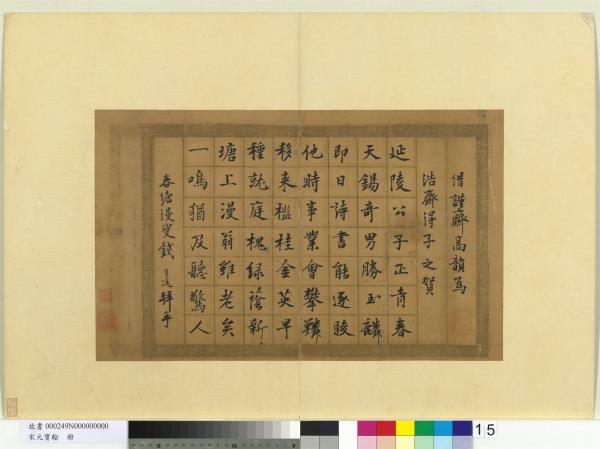 借謹齋高韻為
浩齋得子之賀
延陵公子正青春
天錫奇男勝玉麟
即日詩書能逐駿
他時事業會攀鱗
移來檻桂金英早
種就庭槐綠蔭新
瑭上漫翁雖老矣
一鳴猶及聽驚人
春塘漫叟錢拜手
故書 000249N000000000
宋元寶繪 冊
15